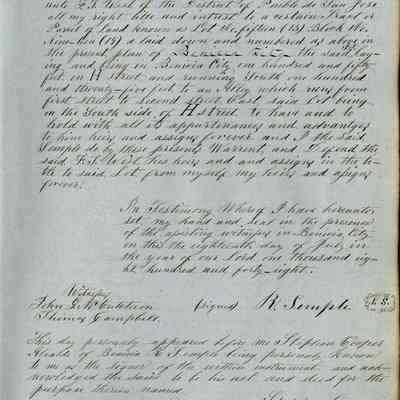 unto F. S. West of the District of Pueblo de San Jose
all my right title and interest to a certain Tract or
Parcel of Land known as Lot No. fifteen (15) Block No.
Nineteen (19) as laid down and numbered as above in
the present plan of Benicia City. The said Lay-
ing and being in Benicia City one hundred and fifty
feet on H Street and running South one hundred
and twenty-five feet to an Alley which runs from
first street to Second street East said Lot being
on the South side of H Street. to have and to
hold with all its appurtenances and advantages
to him heirs and assigns forever and I the Said
Semple do by these presents Warrent, and Defend the
said F. S. West his heirs and and assigns in the ti-
tle to said Lot from myself my heirs and assigns
forever.
In Testimony Whereof I have hereunto
set my hand and seal in the presence
of the assisting witness in Benicia City
on this the eighteenth day of July in
the year of our Lord one thousand eig-
ht hundred and forty-eight.
Witness
John S. McCutcheon (signed) R. Semple L.S.
Thomas Campbell
This day personaly appeared before me Stephen Cooper
Alcalde of Benicia R. Semple being personaly known
to me as the signer of the within instrument and ack-
nowledged the same to be his act and deed for the
purpose therein named.
Stephen